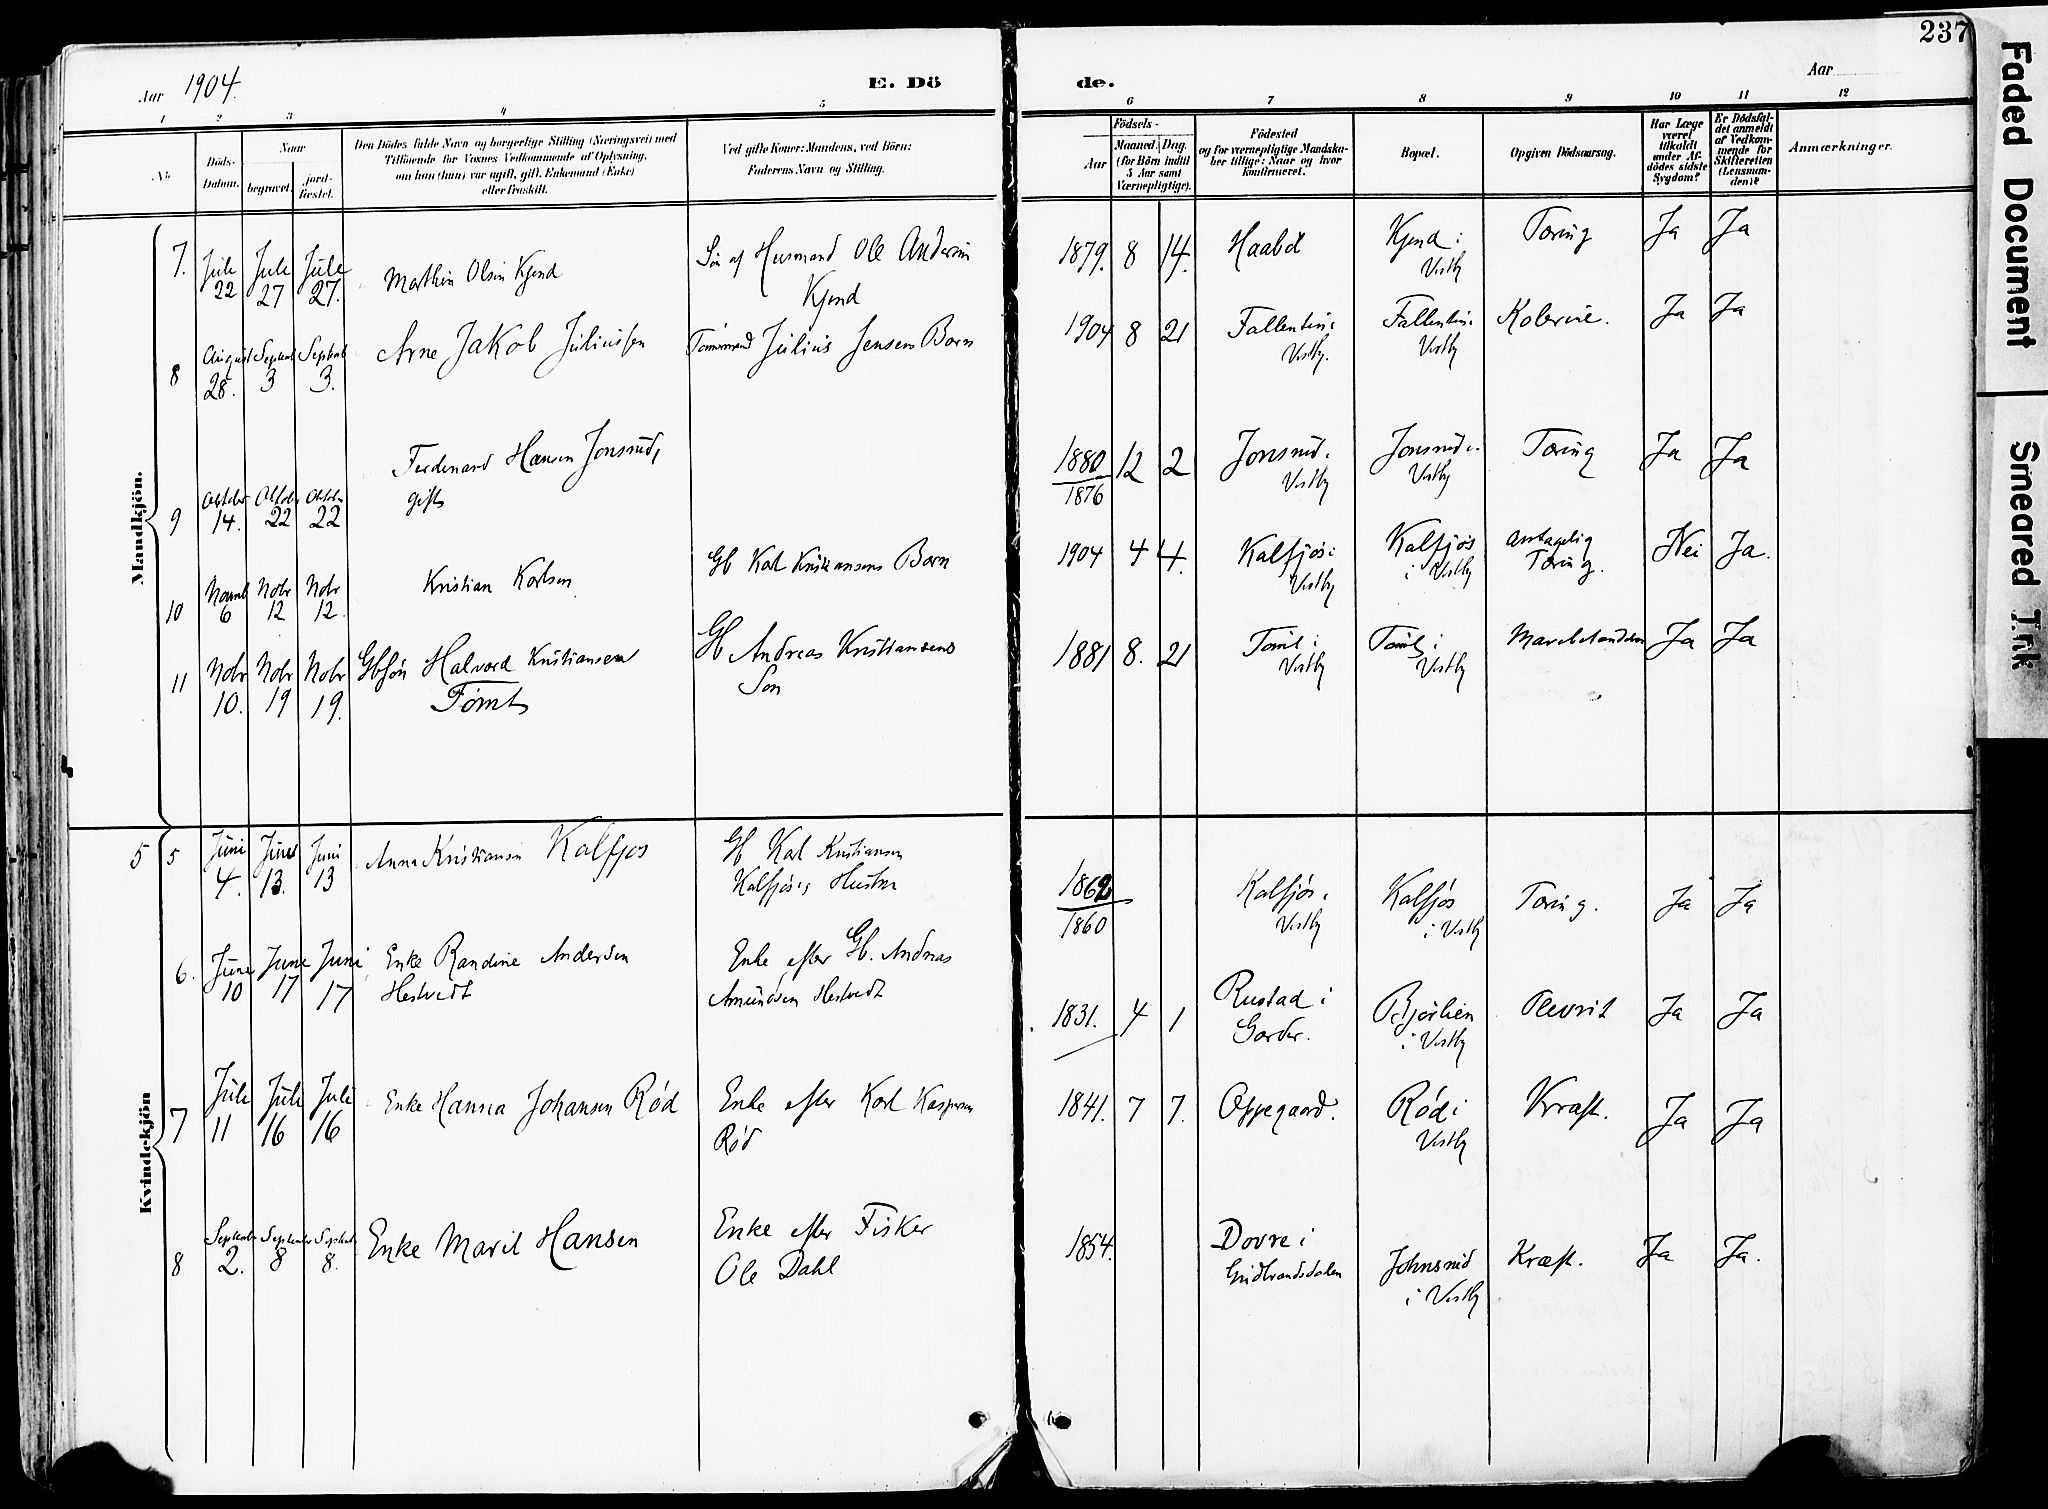 237
Faded Document
Smeared Ink
Aar 1904.
E. Dö de.
Aar
1 2 3 4 5 6 7 8 9 10 11 12
No
Döds-Datum.
Naar
begravet. jord-fæstet.
Den Dödes fulde Navn og borgerlige Stilling (Næringsvei) med
Tilföiende for Voxnes Vedkommende af Oplysning,
om han (hun) var ugift, gift, Enkemand (Enke)
eller fraskilt.
Ved gifte Koner: Mandens, ved Börn:
Faderens Navn og Stilling.
Födsels-
Aar
Maaned. Dag.
(for Börn indtil 5 Aar samt Værnepligtige).
Födested
og for værnepligtige Mandska-
ber tillige: Naar og hvor
konfirmeret.
Bopæl.
Opgiven Dödsaarsag.
Har Læge været tilkaldt under Af-dödes sidste Sygdom?
Er Dödsfal-det anmeldt af Vedkom-mende for Skifteretten (Lensman-den)?
Anmærkninger.
Mandkjön.
7. Juli 22 Juli 27 Juli 27. Mathias Olsen Kjend Sön af Husmand Ole Andersen Kjend 1879. 8 14. Haaböl Kjend i Vestby Tæring Ja Ja
8 August 28. Septemb 3 Septemb 3. Arne Jakob Juliussen Tömmermand Julius Jensens Barn 1904 8 21 Fallentin i Vestby. Fallentin i Vestby Kolerine. Ja Ja
9 Oktober 14. Oktober 22 Oktober 22 Ferdinand Hansen Jonsrud, gift 1880 1876 12 2 Jonsrud i Vestby Jonsrud i Vestby Tæring Ja Ja
10 Novemb 6 Novbr 12 Novbr 12 Kristian Karlsen Gb Karl Kristiansens Barn 1904 4 4. Kalfjös i Vestby Kalfjös i Vestby antagelig Tæring. Nei Ja.
11 Novbr 10. Novbr 19 Novbr 19. Gbsön Halvard Kristiansen Tömt Gb Andreas Kristiansens Sön 1881 8. 21 Tömt i Vestby Tömt i Vestby Ja Ja
Kvindekjön
5 5 Juni 4. Juni 13. Juni 13 Anna Kristiansen Kalfjos Gb Karl Kristiansen Kalfjös's Hustru 1862 1860 Kalfjös i Vestby Kalfjös i Vestby Tæring. Ja Ja
6. Juni 10 Juni 17 Juni 17 Enke Randine Andersen Hestvedt Enke efter Gb. Andreas Amundsen Hestvedt 1831. 4 1 Rustad i Garder. Bjørlien i Vestby Plevrit Ja Ja
7 Juli 11 Juli 16 Juli 16 Enke Hanna Johansen Rød Enke efter Karl Kaspersen Rød 1841. 7 7. Oppegaard. Rød i Vestby Kræft. Ja Ja
8 Septemb 2. September 8 Septemb 8. Enke Marit Hansen Enke efter Fisker Ole Dahl 1854. Dovre i Gudbrandsdalen Johnsrud i Vestby Kræft. Ja Ja.